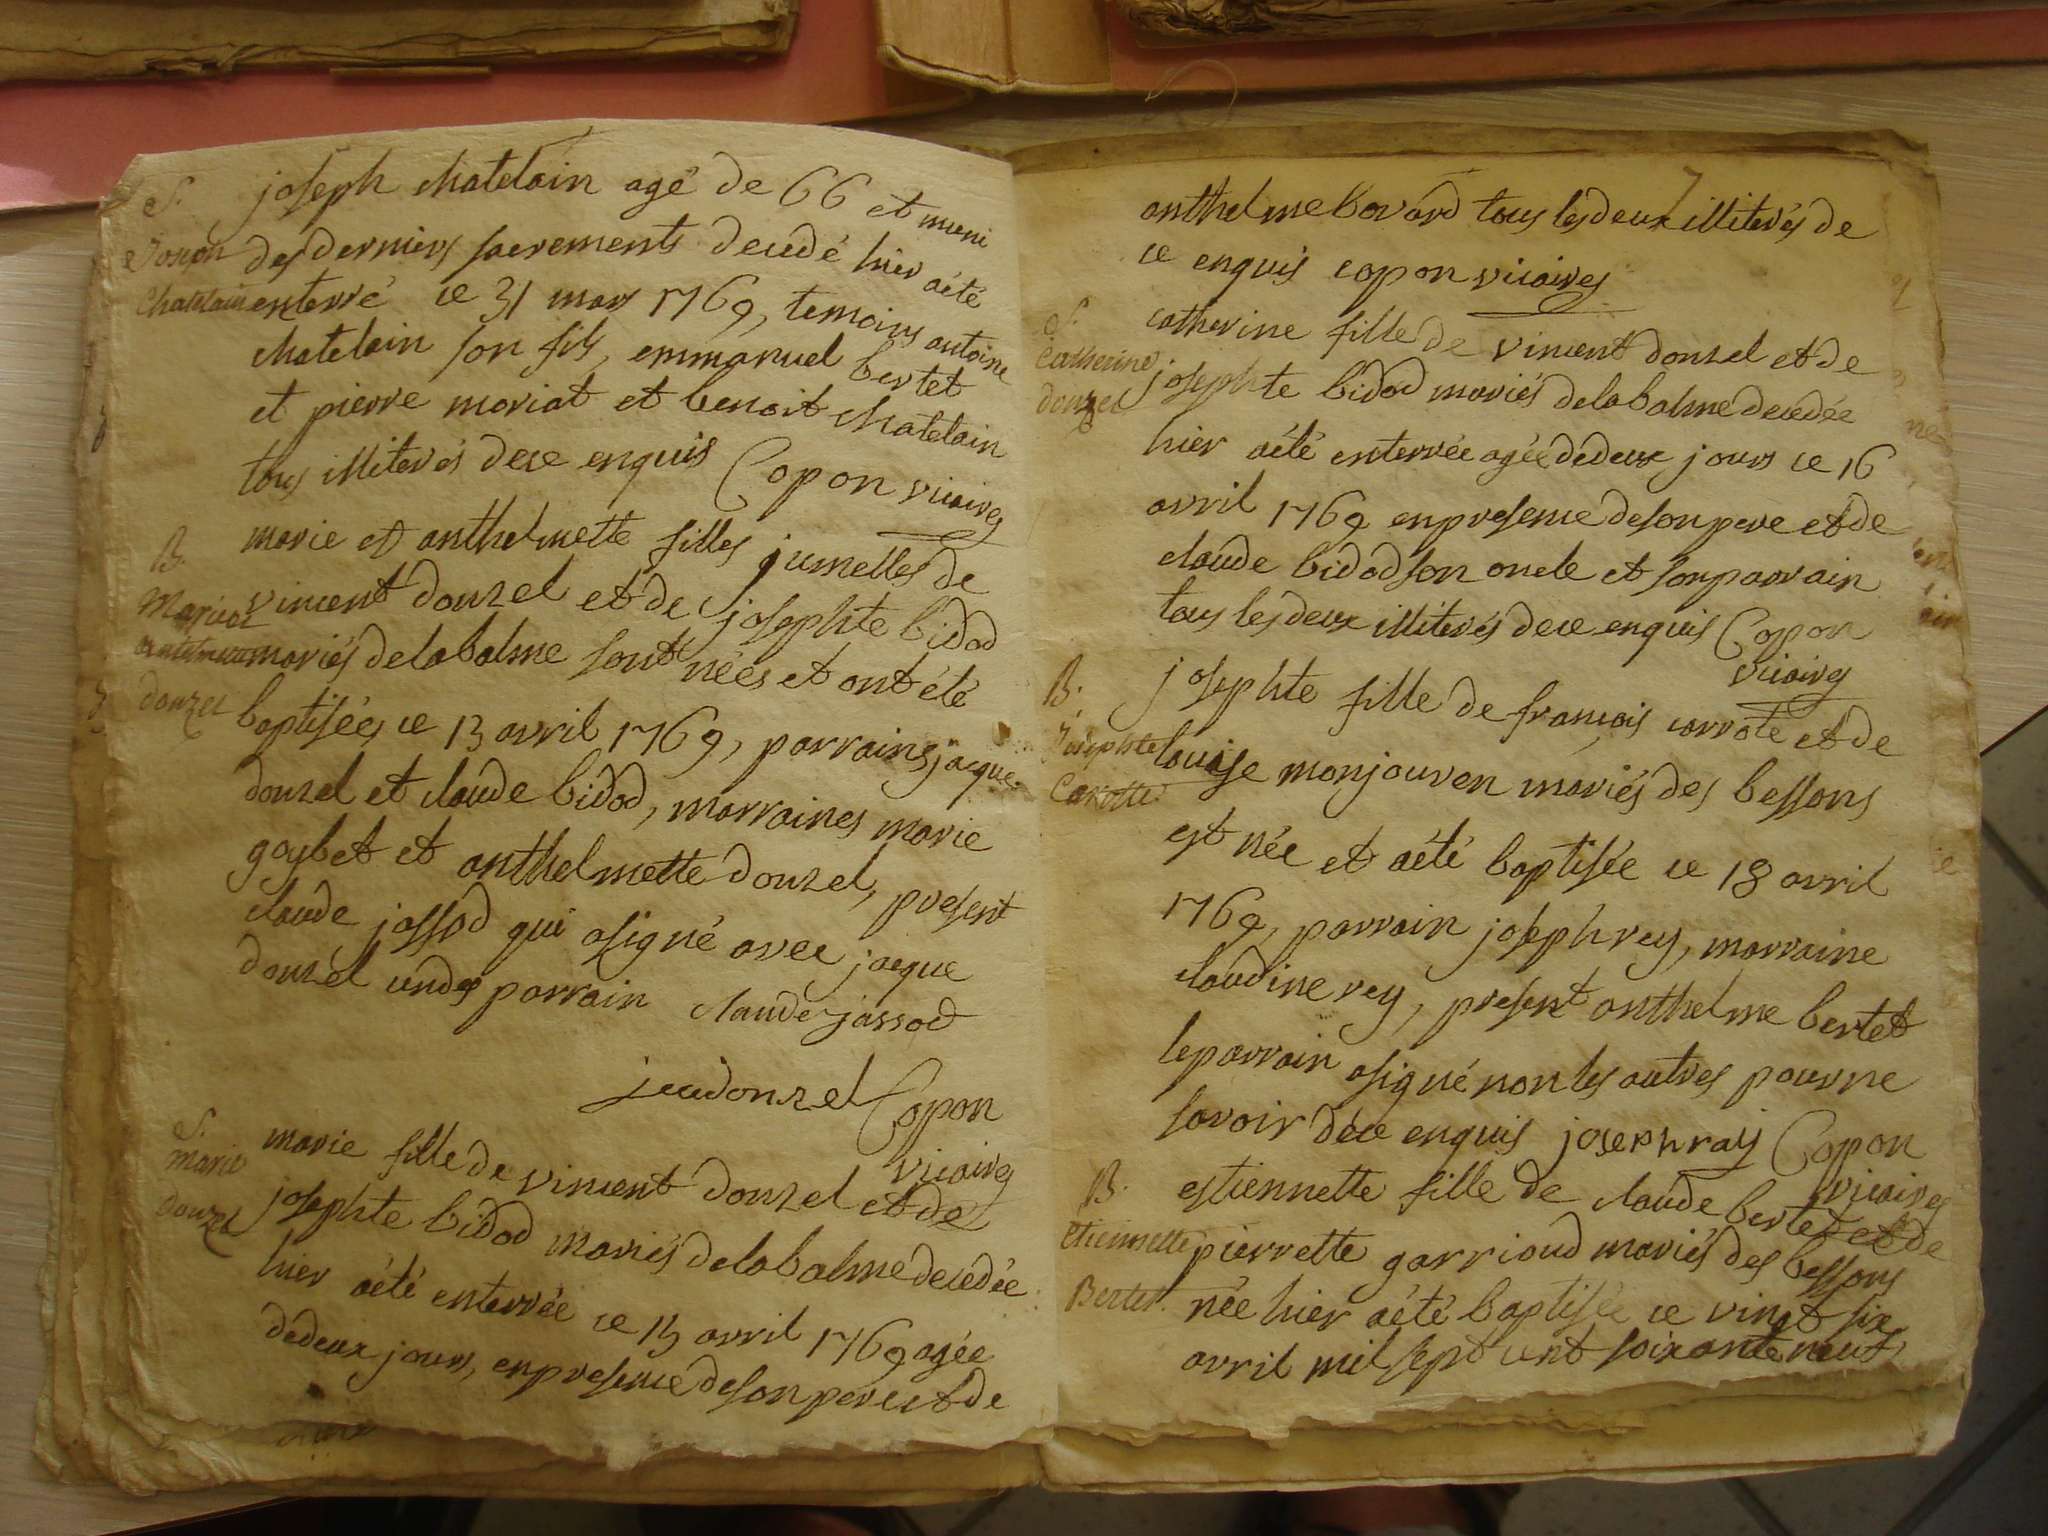 S.
Joseph
Chatelain
joseph chatelain agé de 66 et muni
des derniers sacrements decedé hier aété
enterré ce 31 mars 1769, temoins antoine
chatelain son fils, emmanuel bertet
et pierre moriat et benoit chatelain
tous illiterés dece enquis Copon vicaires
B.
Marie et
antelmette
donzel
marie et anthelmette filles jumelles de
vincent donzel et de josephte bidod
mariés delabalme sont nées et ont été
baptisées ce 13 avril 1769, parrains jacque
donzel et claude bidod, marraines marie
goybet et anthelmette donzel, present
claude jossod qui asigné avec jacque
donzel undes parrain claude jassod
jacdonzel Copon
vicaires
S.
marie
donzel
marie fille de vincent donzel et de
josephte bidod mariés delabalme decedée
hier aété enterrée ce 15 avril 1769 agée
dedeux jours, enpresence deson pere et de
7
anthelme bovard tous lesdeux illiterés de
ce enquis copon vicaires
S.
Catherine
donzel
catherine fille de vincent donzel et de
josephte bidod mariés delabalme decedée
hier aété enterrée agée dedeux jours ce 16
avril 1769 enpresence deson pere et de
claude bidod son oncle et son parrain
tous lesdeux illiterés dece enquis Copon
vicaires
B.
Josephte
Carotte
josephte fille de françois carrote et de
louise monjouven mariés des bessons
est née et aété baptisée ce 18 avril
1769, parrain joseph rey, marraine
claudine rey, present anthelme bertet
leparrain asigné non les autres pour ne
savoir dece enquis joseph ray Copon
vicaires
B.
Etiennette
Bertet.
estiennette fille de claude bertet et de
pierrette garrioud mariés des bessons
née hier aété baptisée ce vingt six
avril mil sept cent soixante neuf